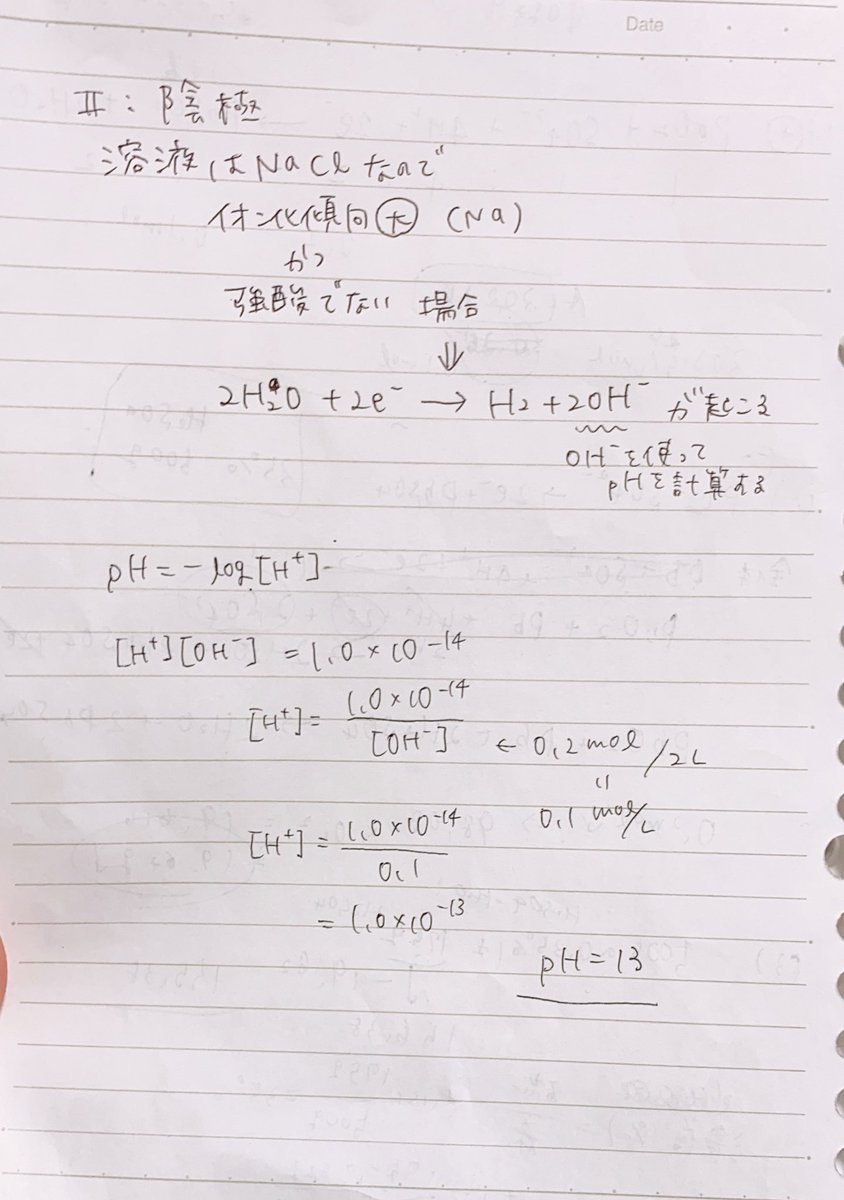 Date
Ⅱ：陰極
溶液はNaClなので
イオン化傾向大 (Na)
かつ
強酸でない 場合
⇓
2H₂O + 2e⁻ → H₂ + 2OH⁻ が起こる
OH⁻を使って
pHを計算する
pH = -log[H⁺]
[H⁺][OH⁻] = 1.0×10⁻¹⁴
[H⁺] = 1.0×10⁻¹⁴ / [OH⁻] ← 0.2mol/2L
〃
0.1 mol/L
[H⁺] = 1.0×10⁻¹⁴ / 0.1
= 1.0×10⁻¹³
pH = 13